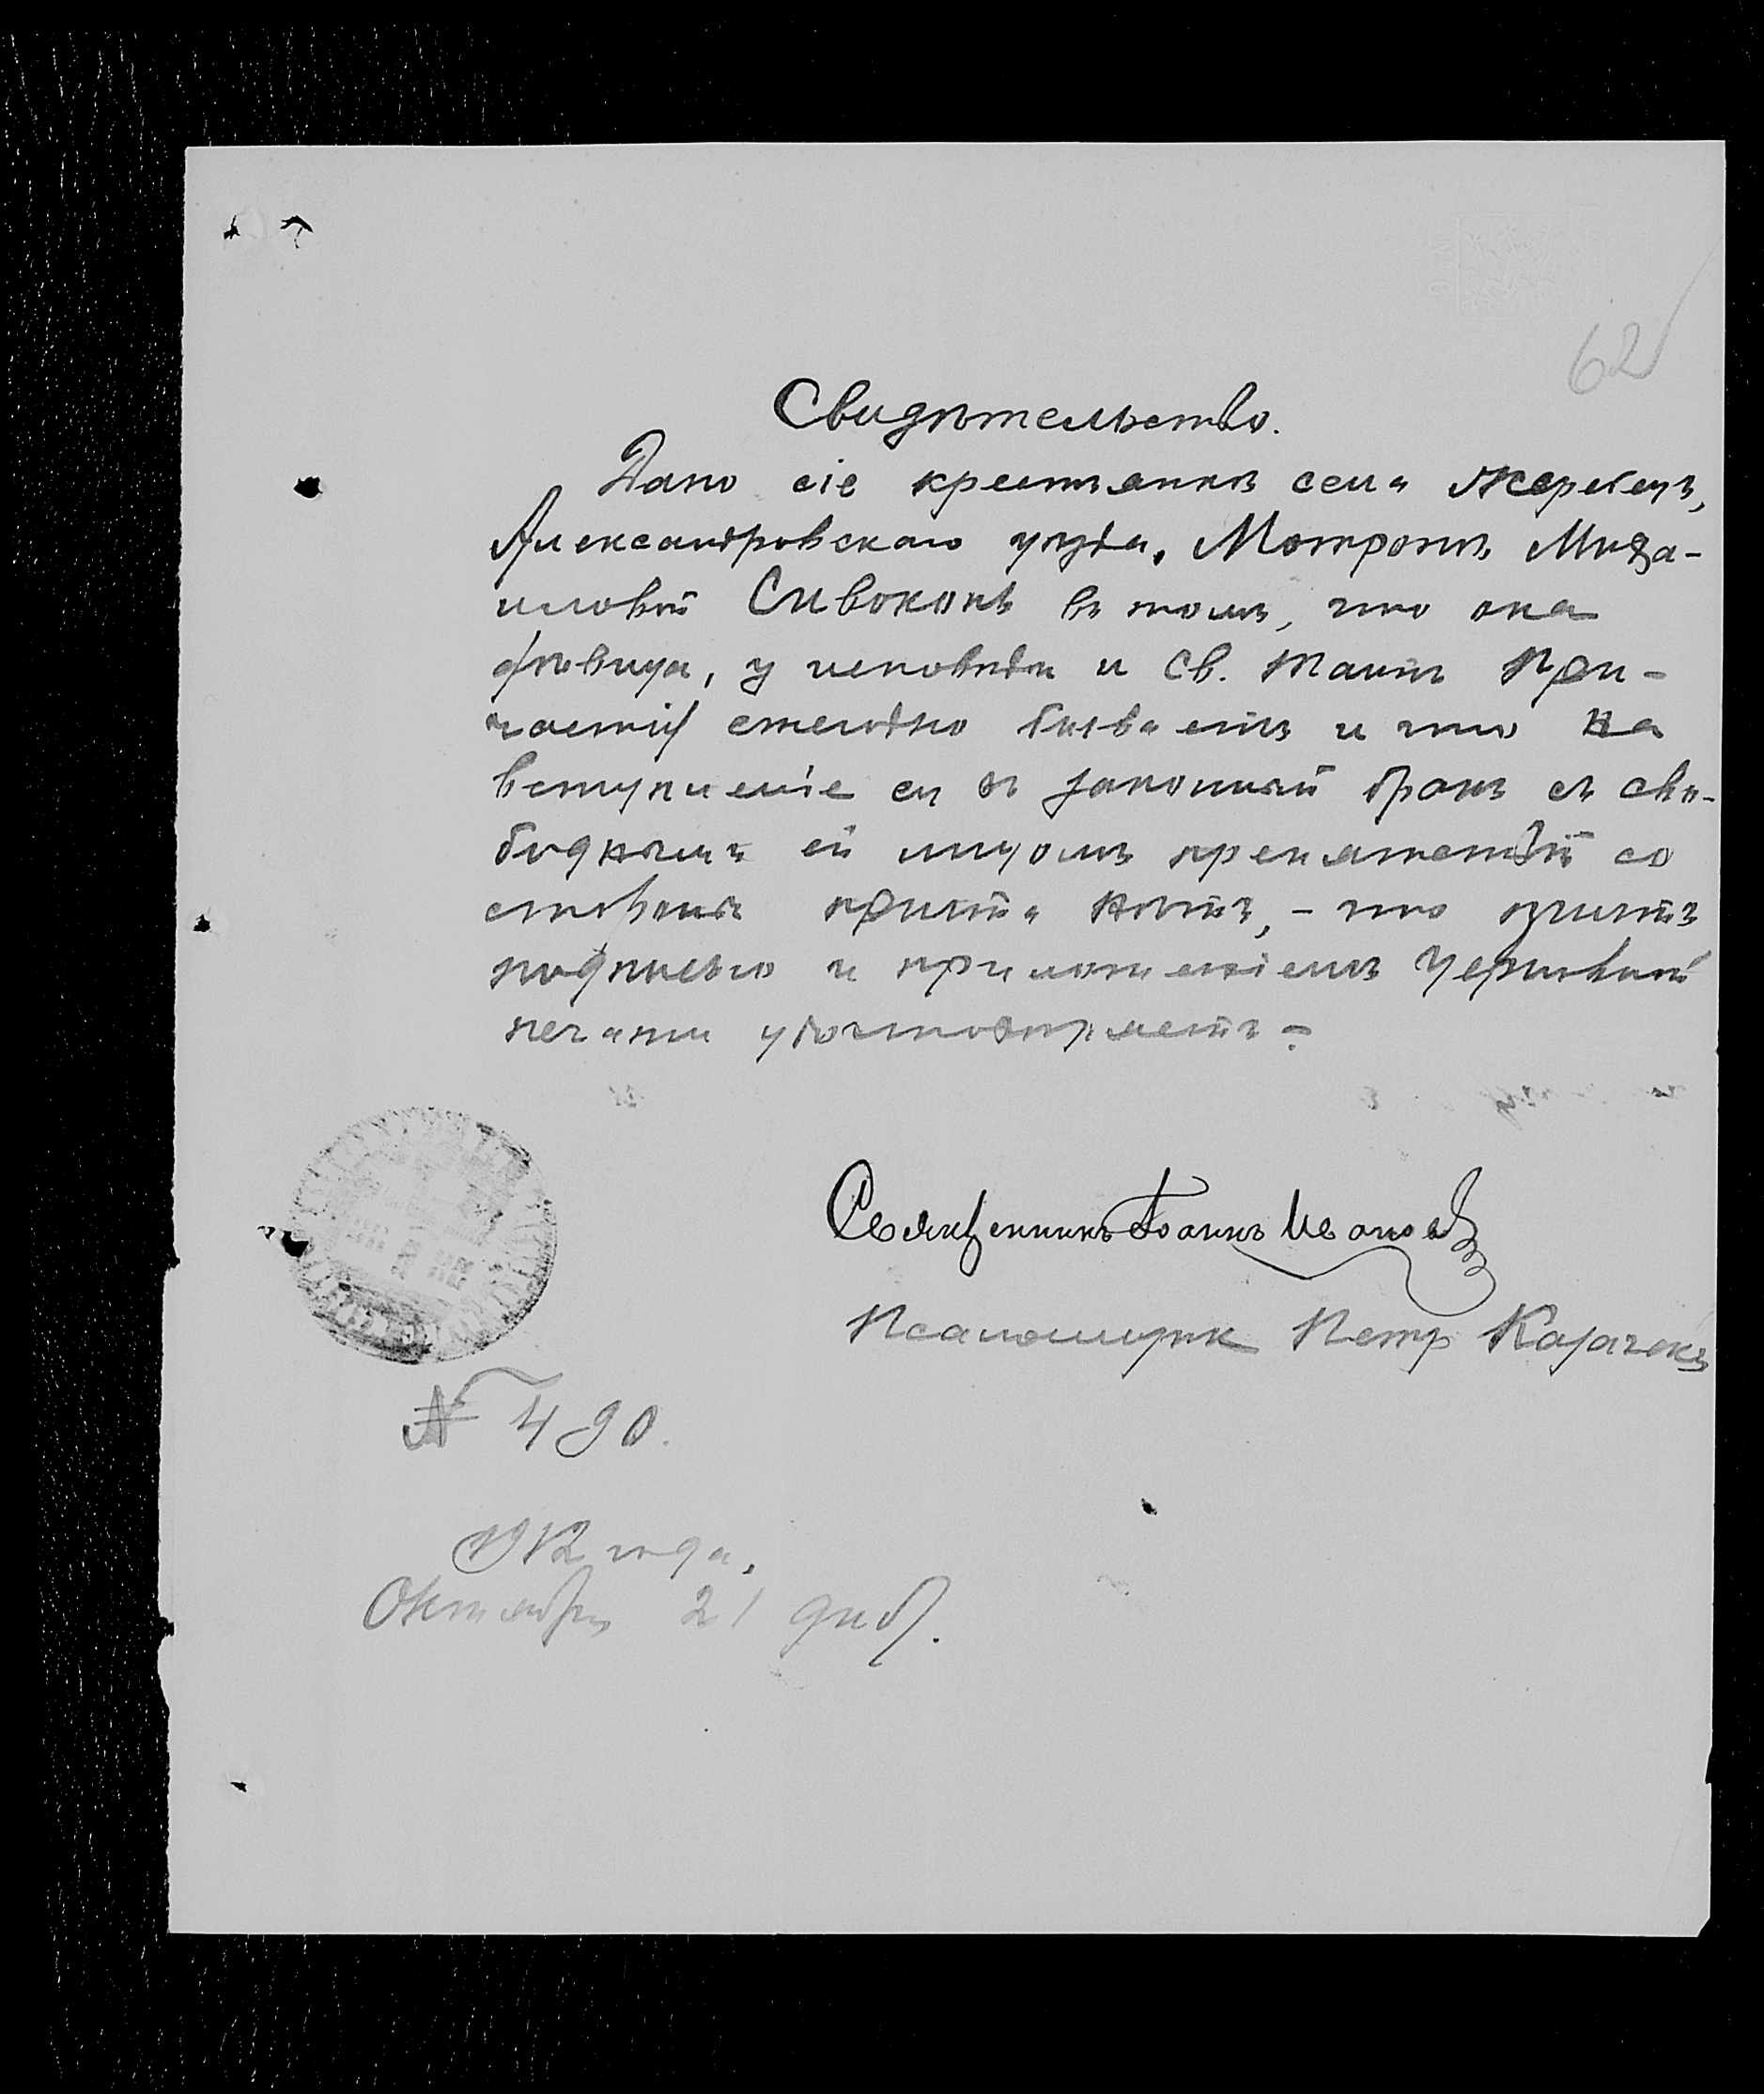 62
Свидѣтельство.
Дано сіе крестьянкѣ села Жеребецъ,
Александровскаго уѣзда, Мотронѣ Миха-
иловой Сивоконь въ томъ, что она
дѣвица, у исповѣди и Св. Таинъ При-
частія ежегодно бываетъ и что на
вступленіе ея въ законный бракъ съ сво-
боднымъ ей лицомъ препятствій со
стороны причта нѣтъ, - что причтъ
подписью и приложеніемъ церковной
печати удостовѣряетъ.
Священникъ Іоаннъ Ивановъ
Псаломщик Петр
№ 490.
1912 года.
Октября 21 дня.